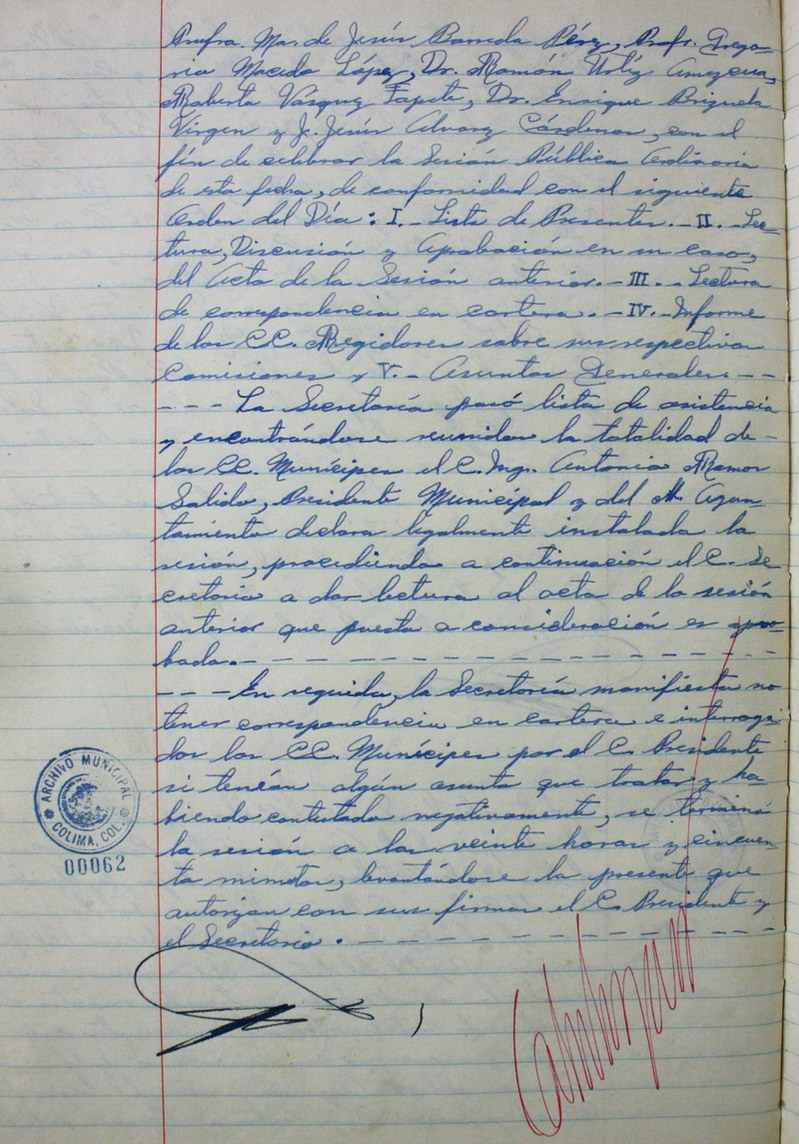 Profra. Ma. de Jesús Barreda Pérez, Profr. Grego-
rio Macedo López, Dr. Ramón Ortiz Amezcua,
Roberto Vásquez Tapete, Dr. Enrique Brizuela
Virgen y J. Jesús Alvarez Cárdenas, con el
fin de celebrar la Sesión Pública Ordinaria
de esta fecha, de conformidad con el siguiente
Orden del Día: I.- Lista de Presentes.- II.- Lec-
tura, Discusión y Aprobación en su caso,
del Acta de la Sesión anterior.- III.- Lectura
de correspondencia en cartera.- IV.- Informe
de los CC. Regidores sobre sus respectivas
Comisiones y V.- Asuntos Generales. - -
- - - La Secretaría pasó lista de asistencia
y encontrándose reunidos la totalidad de-
los CC. Munícipes el C. Ing. Antonio Ramos
Salido, Presidente Municipal y del H. Ayun-
tamiento declara legalmente instalada la
sesión, procediendo a continuación el C. Se
cretario a dar lectura al acta de la sesión
anterior que puesta a consideración es apro-
bada. - - - - - - - - - - - - - - -
- - - En seguida, la Secretaría manifiesta no
tener correspondencia en cartera e interroga
dos los CC. Munícipes por el C. Presidente
si tenían algún asunto que tratar y ha-
biendo contestado negativamente, se terminó
la sesión a las veinte horas y cincuen
ta minutos, levantándose la presente que
autorizan con sus firmas el C. Presidente y
el Secretario. - - - - - - - - - - - - -
ARCHIVO MUNICIPAL
COLIMA, COL.
00062